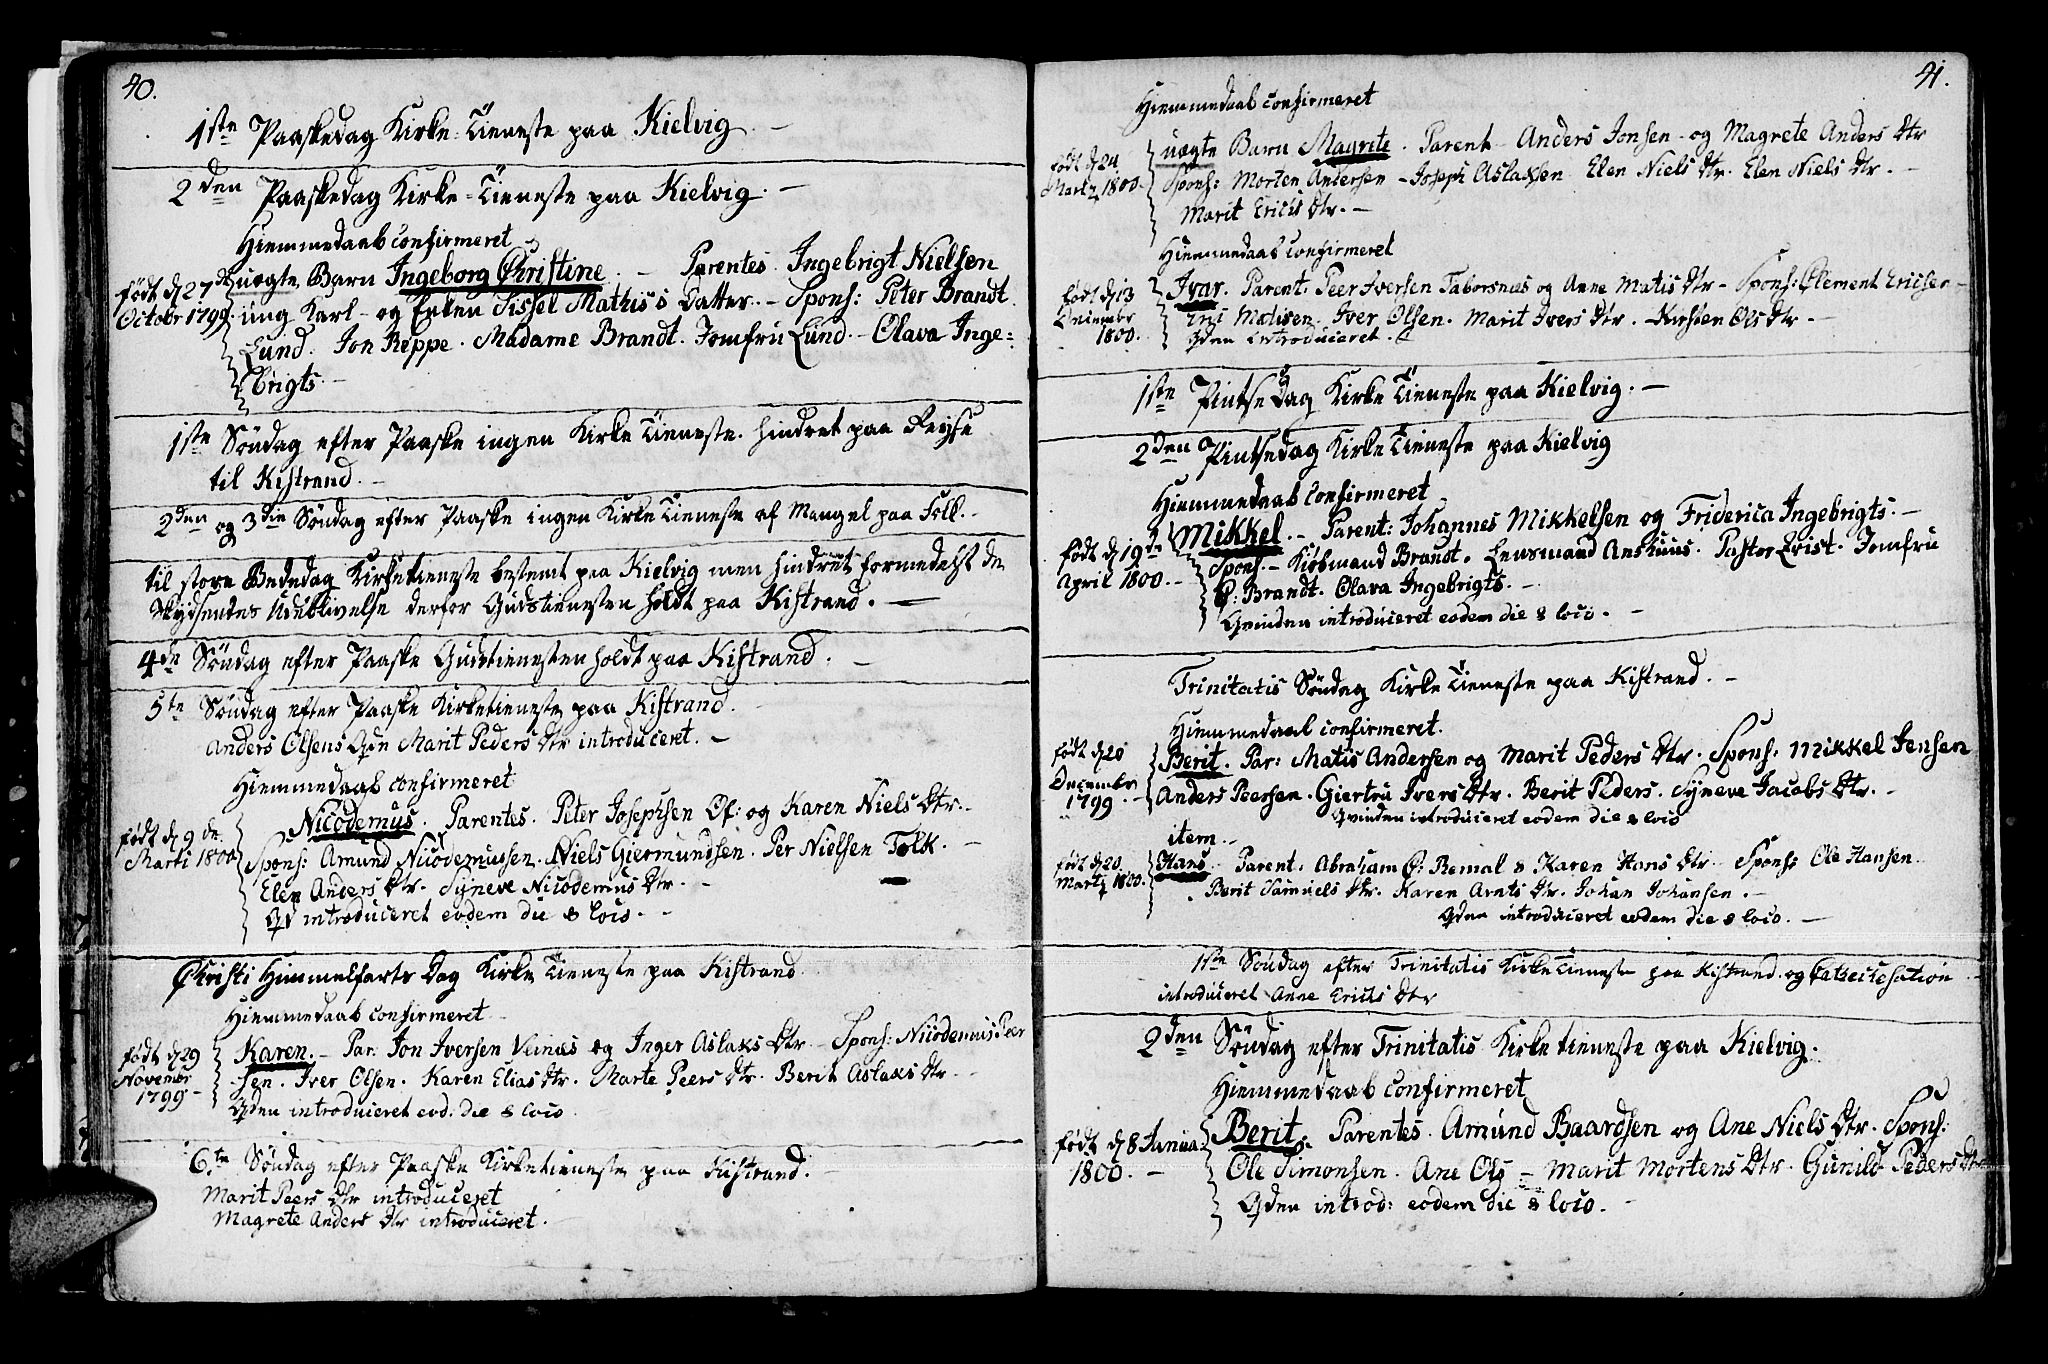 40.
1ste Paaskedag Kirke-Tieneste paa Kielvig. —
2den Paaskedag Kirke-Tieneste paa Kielvig. —
Hiemmedaab confirmeret
født d 27de October 1799.
uægte Barn Ingeborg Christine. — Parentes. Ingebrigt Nielsen
ung Karl - og Enken Sissel Mathis's Datter. — Spons: Peter Brandt.
Lund. Jon Reppe. Madame Brandt. Jomfru Lund. — Olava Inge=
brigts. —
1ste Søndag efter Paaske ingen Kirke Tieneste. hindret paa Reyse
til Kistrand. —
2den og 3die Søndag efter Paaske ingen Kirke Tieneste af Mangel paa Folk. —
til store Bededag Kirketieneste bestemt paa Kielvig men hindret formedelst de
Skydsendes Udeblivelse derfor Gudstienesten holdt paa Kistrand. —
4de Søndag efter Paaske Gudstienesten holdt paa Kistrand. —
5te Søndag efter Paaske Kirketieneste paa Kistrand.
Anders Olsens Qde Marit Peders Dtr introduceret. —
Hiemmedaab confirmeret
født d 9de Marti 1800
Nicodemus. Parentes. Peter Josephsen Of: og Karen Niels Dtr. —
Spons: Amund Nicodemussen. Niels Giermundsen. Per Nielsen Tolk. —
Elen Anders Dtr. Synneve Nicodemus Dtr. —
Qd introduceret eodem die & loco. —
Christi Himmelfarts Dag Kirke Tieneste paa Kistrand
Hiemmedaab confirmeret
født d 29 Novembr 1799
Karen. — Par: Jon Iversen Veines og Inger Aslaks Dtr — Spons: Nicodemus Peer
sen. Iver Olsen. Karen Elias Dtr. Marte Peers Dtr. Berit Aslaks Dtr. —
Qden introduceret eod. die & loco
6te Søndag efter Paaske Kirketieneste paa Kistrand.
Marit Peers Dtr introduceret
Magrete Anders Dtr introduceret. —
41.
Hiemmedaab confirmeret
født d 24 Martz 1800.
uægte Barn Magrete. Parent — Anders Jonsen - og Magrete Anders Dtr
Spons: Morten Andersen - Joseph Aslaksen Elen Niels Dtr. Elen Niels Dtr. —
Marit Erichs Dtr. —
Hiemmedaab confirmeret
født d 13 Decembr 1800.
Ivar. Parent: Peer Iversen Taborsnæs og Anne Matis Dtr — Spons: Clement Ericsen —
Matisen. Iver Olsen. Marit Ivers Dtr. Kirsten Ols Dtr. —
Qden introduceret.
1ste Pintse Dag Kirke Tieneste paa Kielvig. —
2den Pintsedag Kirke Tieneste paa Kielvig
Hiemmedaab confirmeret
født d 19de April 1800. —
Mikkel. — Parent: Johannes Mikkelsen og Friderica Ingebrigts. —
Spons. — Kiøbmand Brandt. Lensmand Anshuus. Pastor Qvist. Jomfru
C: Brandt. Olava Ingebrigts. —
Qvinden introduceret eodem die & loco. —
Trinitatis Søndag Kirke Tieneste paa Kistrand. —
Hiemmedaab confirmeret.
født d 20 Decembr 1799. —
Berit. Par: Matis Andersen og Marit Peders Dtr. Spons: Mikkel Jensen
Anders Peersen. Giertru Ivers Dtr. Berit Peders. Synneve Jacobs Dtr. —
Qvinden introduceret eodem die & loco
item. —
født d 20 Martz 1800.
Hans. Parent: Abraham C: Remal & Karen Hans Dtr — Spons: Ole Hansen
Berit Samuels Dtr. Karen Arnts Dtr. Johan Johansen. —
Qden introduceret eodem die & loco. —
1ste Søndag efter Trinitatis Kirke Tieneste paa Kistrand. og Catechesation
introduceret Anne Erichs Dtr
2den Søndag efter Trinitatis Kirke tieneste paa Kielvig.
Hiemmedaab confirmeret
født d 8 Janua: 1800. —
Berit. Parentes. Amund Baardsen og Ane Niels Dtr. Spons:
Ole Simonsen. Ane Ols — Marit Mortens Dtr. Gunild Peders Dtr
Qden introd: eodem die & loco. —